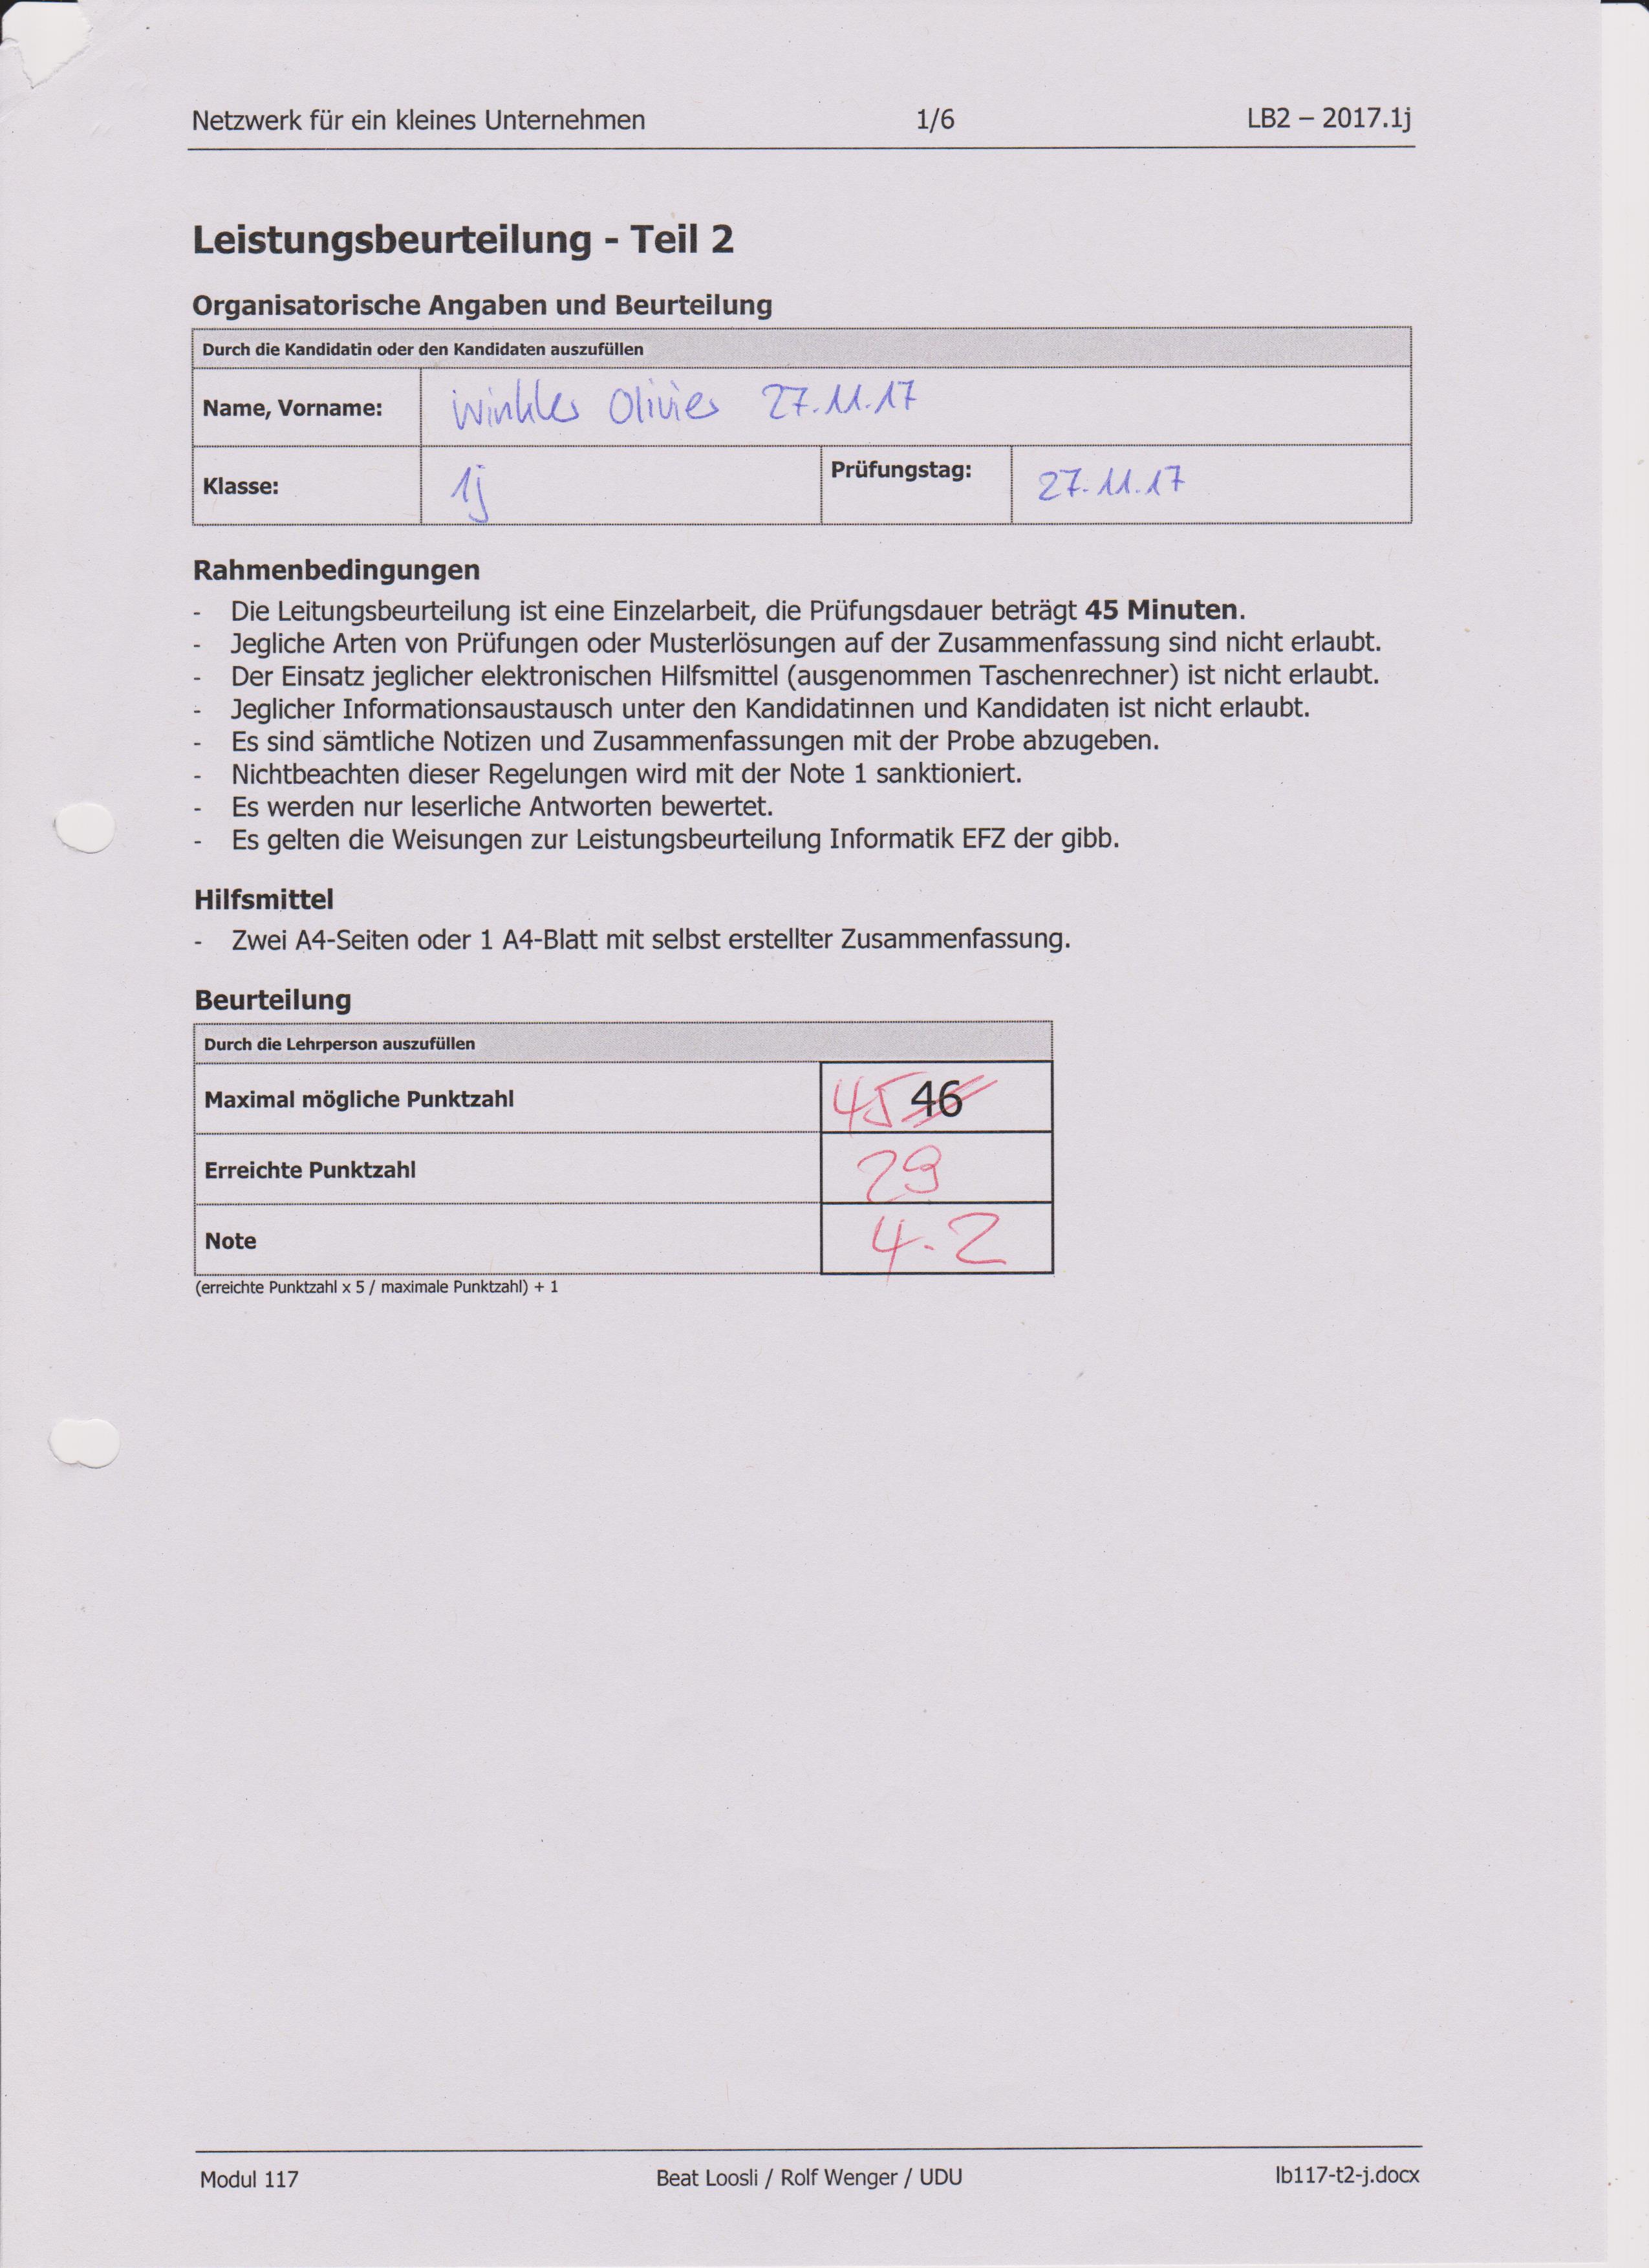 Netzwerk für ein kleines Unternehmen 1/6 LB2 – 2017.1j
Leistungsbeurteilung - Teil 2
Organisatorische Angaben und Beurteilung
Durch die Kandidatin oder den Kandidaten auszufüllen
Name, Vorname: Winkler Olivier 27.11.17
Klasse: 1j Prüfungstag: 27.11.17
Rahmenbedingungen
- Die Leitungsbeurteilung ist eine Einzelarbeit, die Prüfungsdauer beträgt 45 Minuten.
- Jegliche Arten von Prüfungen oder Musterlösungen auf der Zusammenfassung sind nicht erlaubt.
- Der Einsatz jeglicher elektronischen Hilfsmittel (ausgenommen Taschenrechner) ist nicht erlaubt.
- Jeglicher Informationsaustausch unter den Kandidatinnen und Kandidaten ist nicht erlaubt.
- Es sind sämtliche Notizen und Zusammenfassungen mit der Probe abzugeben.
- Nichtbeachten dieser Regelungen wird mit der Note 1 sanktioniert.
- Es werden nur leserliche Antworten bewertet.
- Es gelten die Weisungen zur Leistungsbeurteilung Informatik EFZ der gibb.
Hilfsmittel
- Zwei A4-Seiten oder 1 A4-Blatt mit selbst erstellter Zusammenfassung.
Beurteilung
Durch die Lehrperson auszufüllen
Maximal mögliche Punktzahl 45 46
Erreichte Punktzahl 29
Note 4.2
(erreichte Punktzahl x 5 / maximale Punktzahl) + 1
Modul 117 Beat Loosli / Rolf Wenger / UDU lb117-t2-j.docx